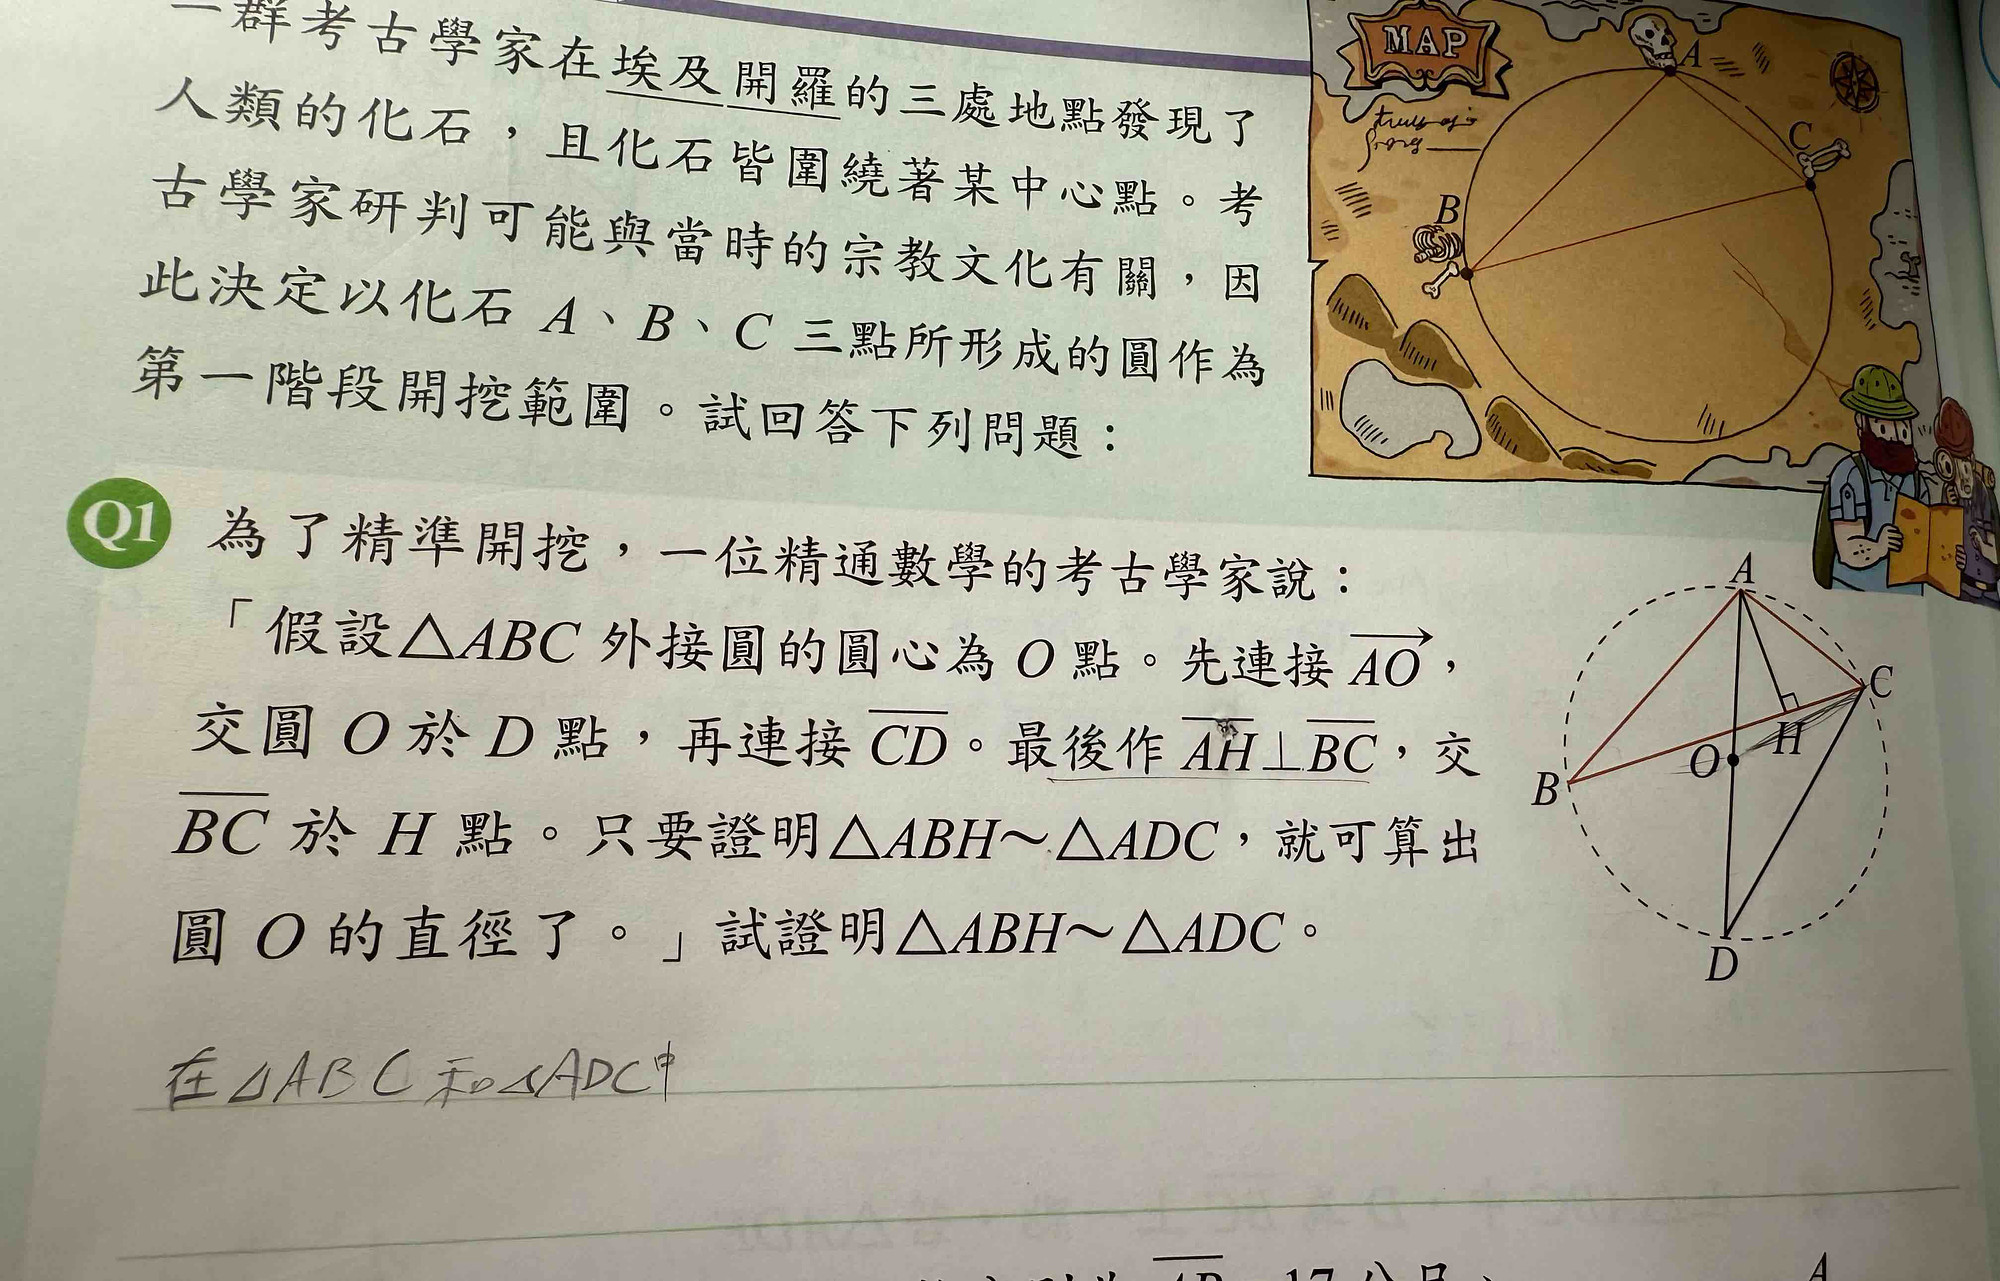 一群考古學家在埃及開羅的三處地點發現了
人類的化石，且化石皆圍繞著某中心點。考
古學家研判可能與當時的宗教文化有關，因
此決定以化石 A、B、C 三點所形成的圓作為
第一階段開挖範圍。試回答下列問題：
MAP
A
C
B
Q1 為了精準開挖，一位精通數學的考古學家說：
「假設△ABC 外接圓的圓心為 O 點。先連接 AO，
交圓 O 於 D 點，再連接 CD。最後作 AH⊥BC，交
BC 於 H 點。只要證明△ABH～△ADC，就可算出
圓 O 的直徑了。」試證明△ABH～△ADC。
A
C
H
O
B
D
在△ABC和△ADC中
A